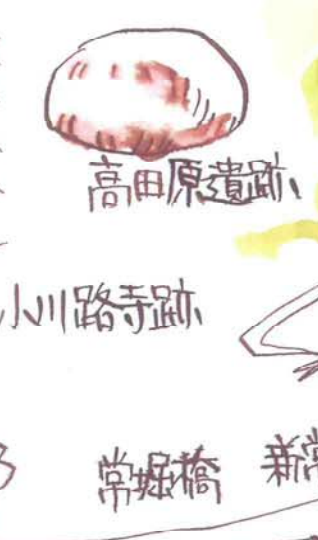 高田原遺跡
小川路寺跡
常堀橋
新常